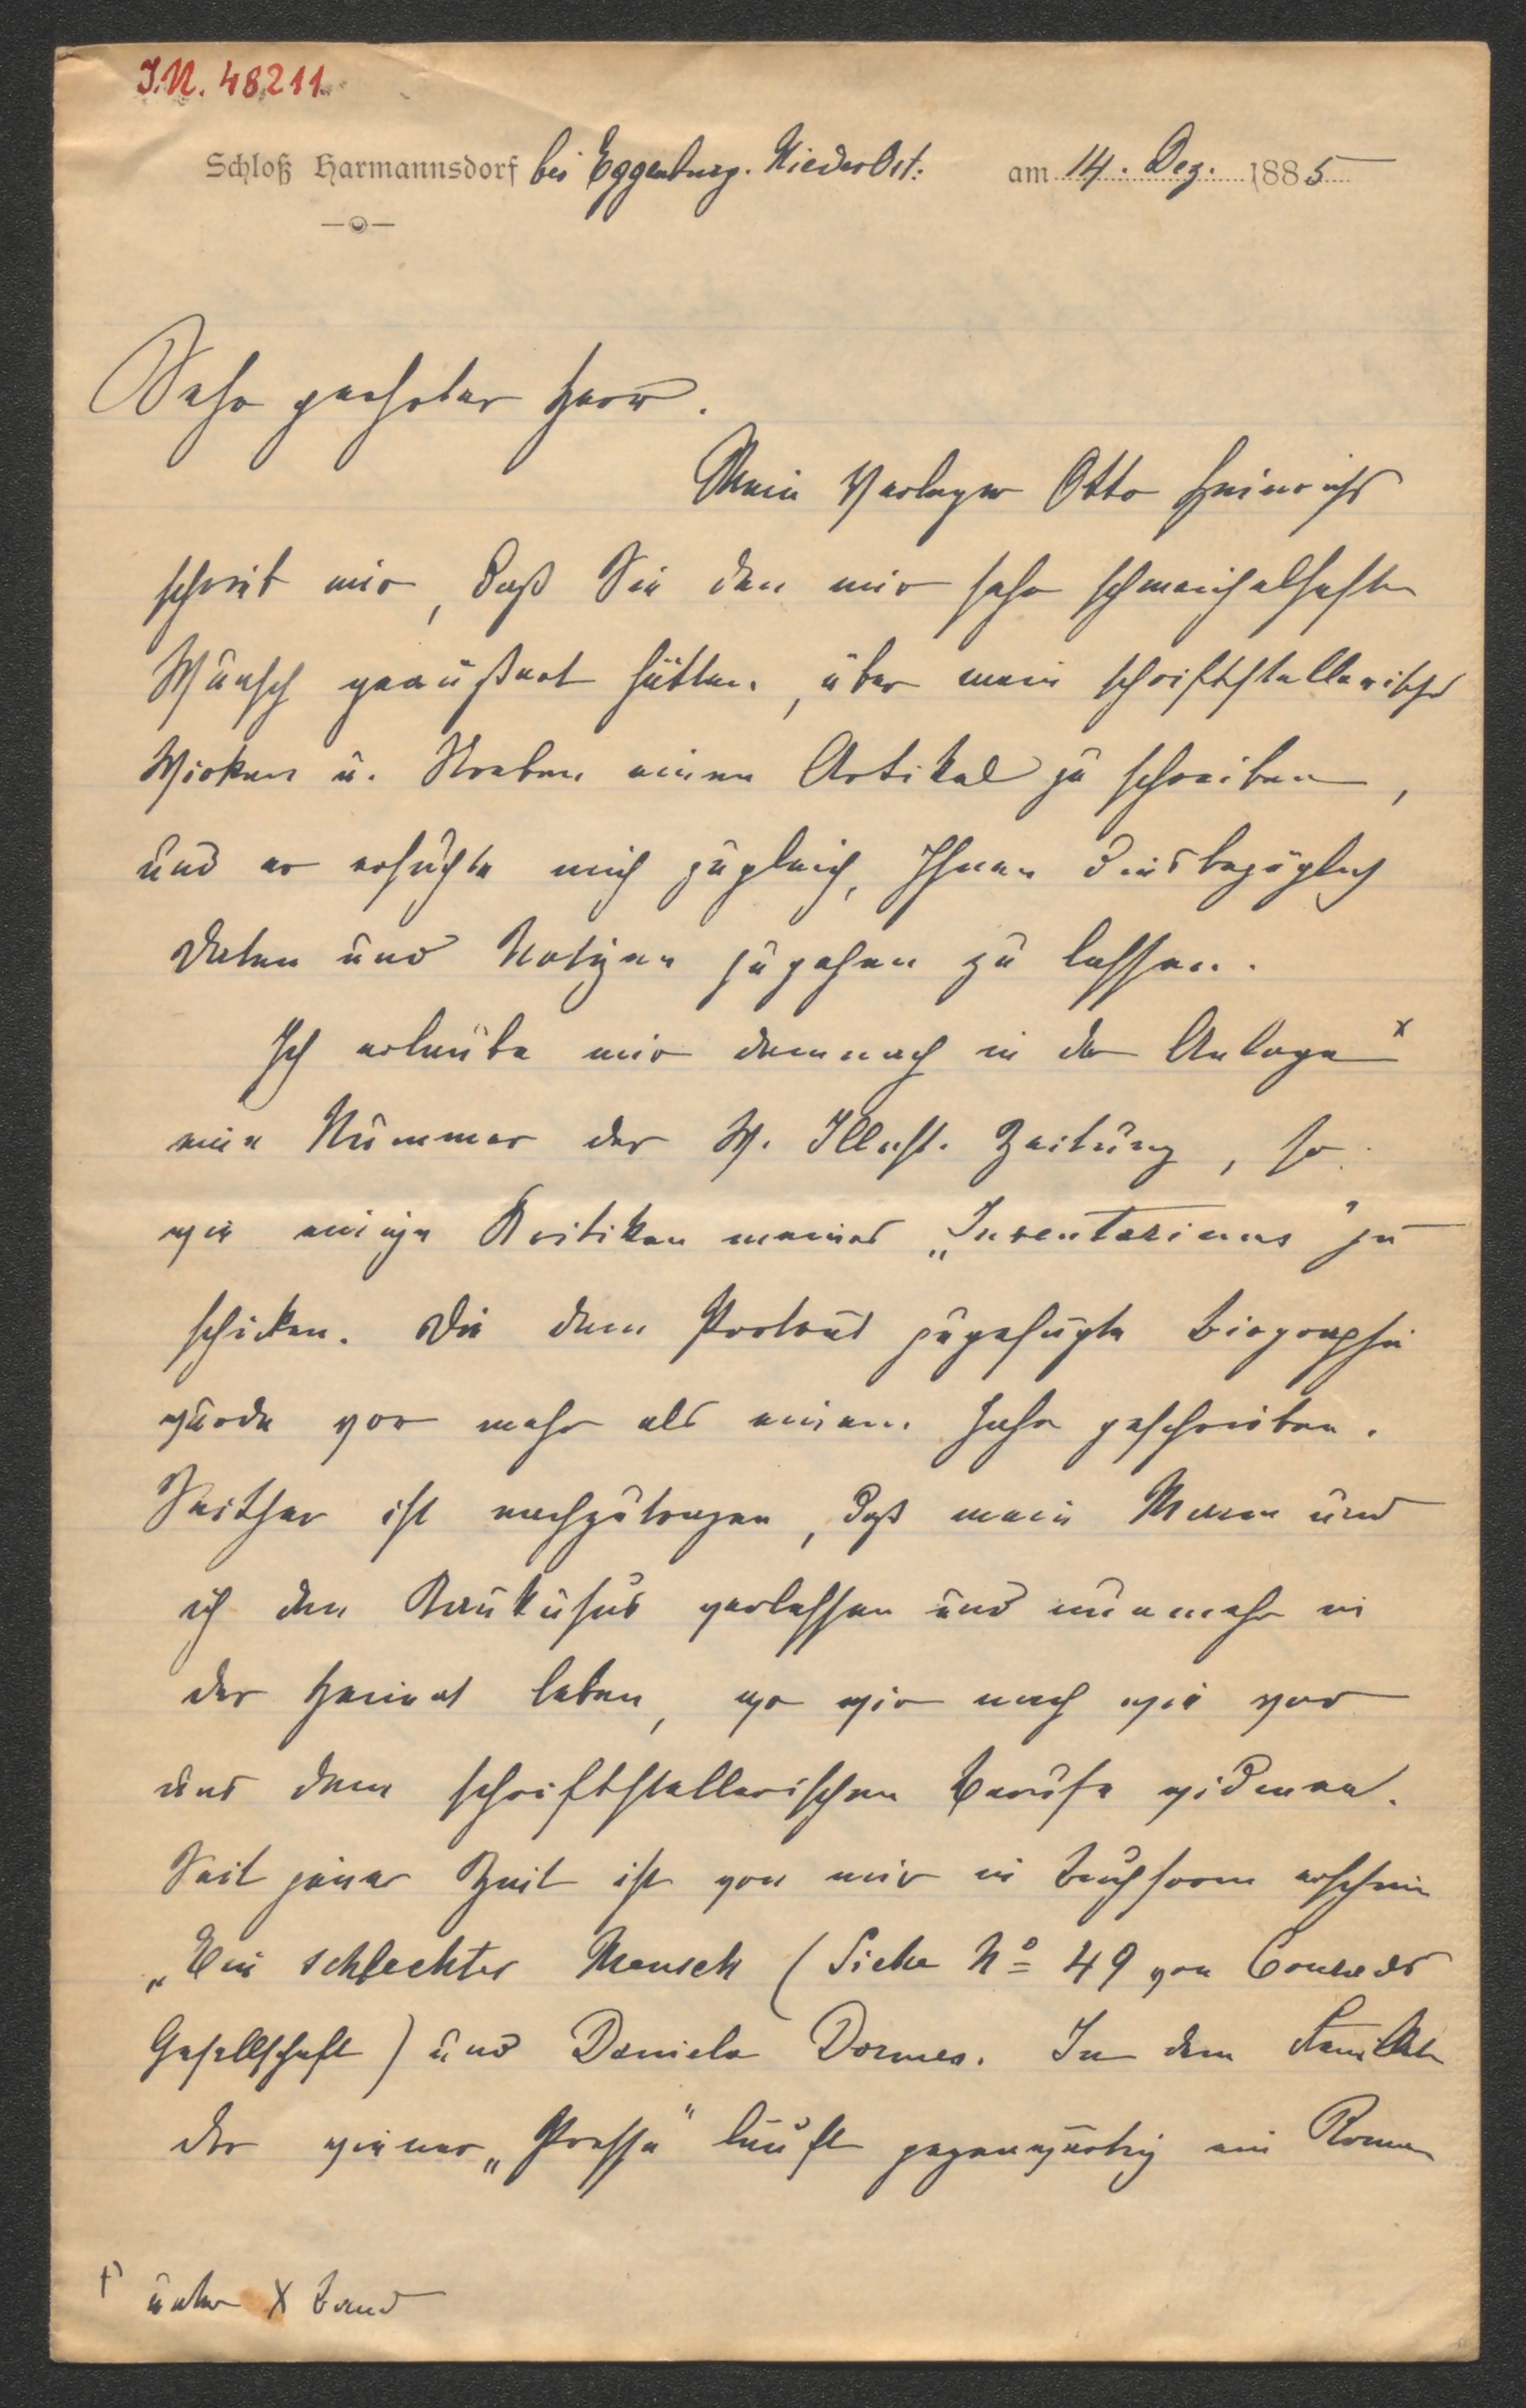 I.N. 48211
Schloß Harmannsdorf bei Eggenburg. NiederÖst: am 14. Dez. 1885
Sehr geehrter Herr.
Mein Verleger Otto Heinrichs
schreibt mir, daß Sie den mir sehr schmeichelhaften
Wunsch geäußert hätten, über mein schriftstellerisches
Wirken u. Streben einen Artikel zu schreiben,
und er ersuchte mich zugleich, Ihnen diesbezüglich
Daten und Notizen zugehen zu lassen.
Ich erlaube mir demnach in der Anlage x
eine Nummer der W. Illust. Zeitung, so
wie einige Kritiken meines „Inventariums" zu
schicken. Die dem Portrait zugefügte Biographie
wurde vor mehr als einem Jahr geschrieben.
Seither ist nachzutragen, daß mein Mann und
ich den Kaukasus verlassen und nunmehr in
der Heimat leben, wo wir nach wie vor
uns dem schriftstellerischen Berufe widmen.
Seit jener Zeit ist von mir in Buchform erschienen
„Ein schlechter Mensch (Siehe No 49 von Conrads
Gesellschaft) und Daniela Dormes. In dem
der wiener „Presse" läuft gegenwärtig ein Roman
unter X Band